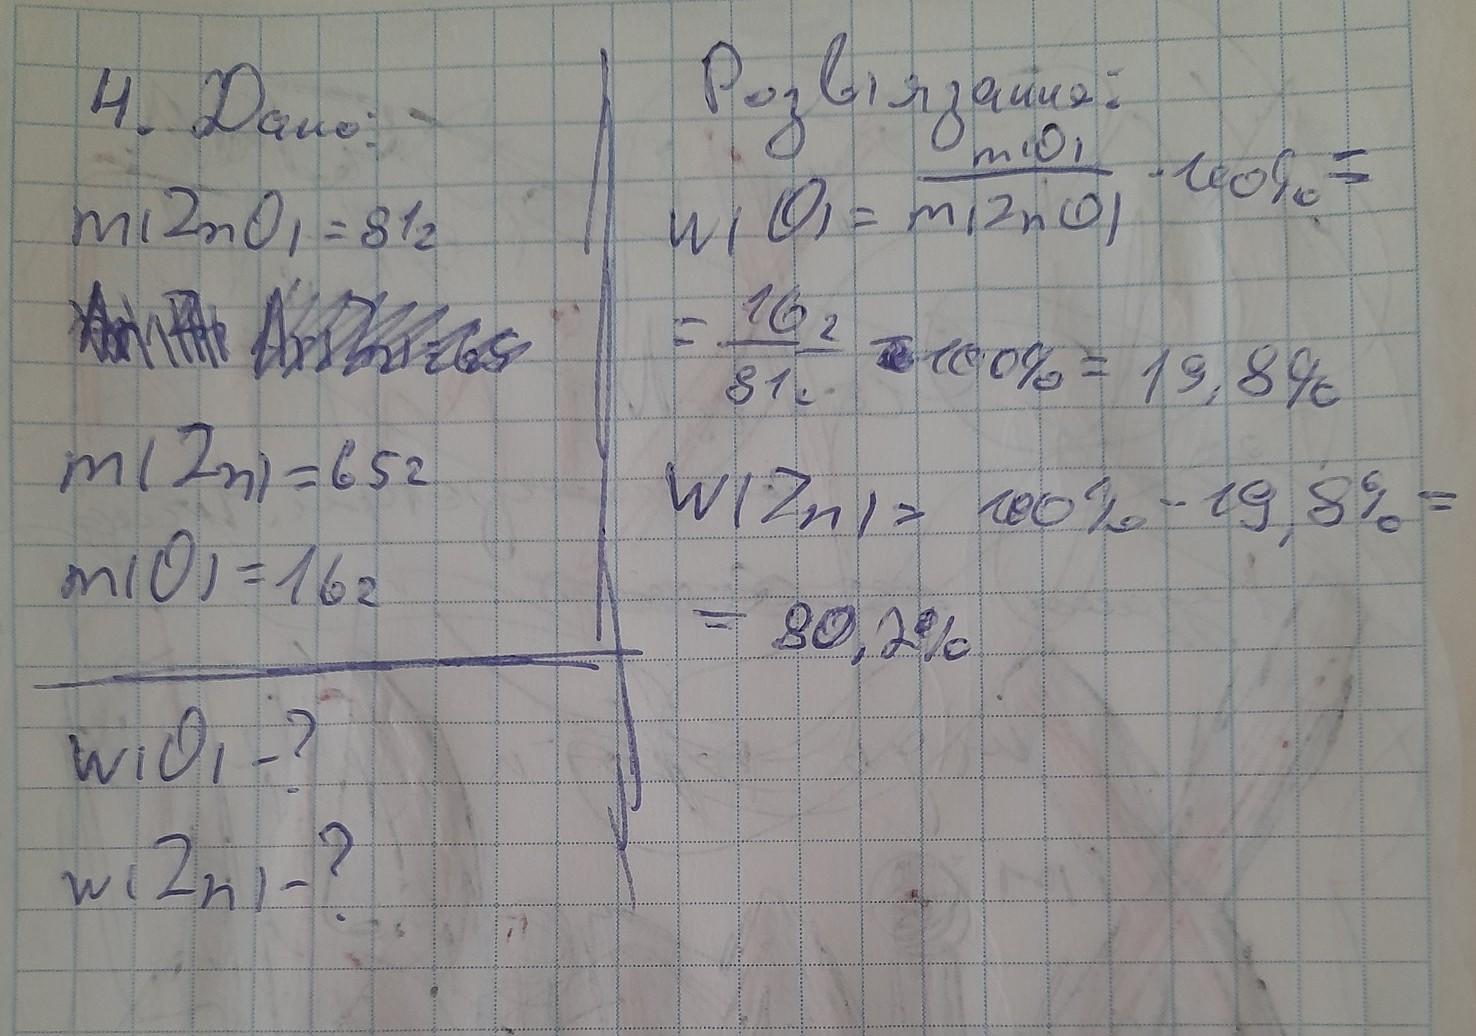 4. Дано:
m(ZnO) = 81г
m(Zn) = 65г
m(O) = 16г
w(O) - ?
w(Zn) - ?
Розв'язання:
w(O) = m(O) / m(ZnO) · 100% =
= 16г / 81г · 100% = 19,8%
w(Zn) = 100% - 19,8% =
= 80,2%